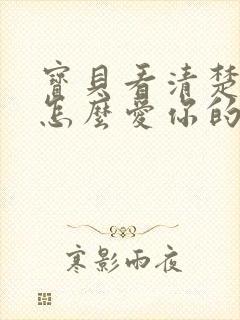 寶貝看清楚
怎麼愛你的
寒影雨夜